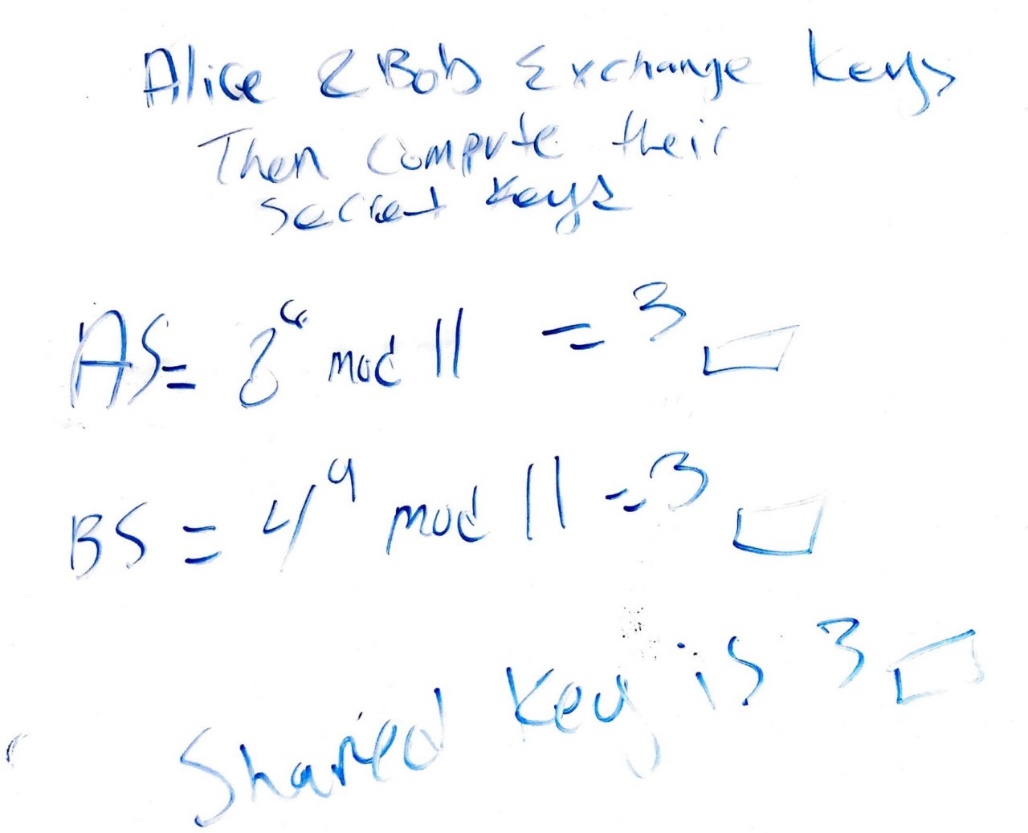 Alice & Bob Exchange Keys
Then Compute their
Secret Keys
AS= 8⁶ mod 11 = 3
BS = 4⁹ mod 11 = 3
Shared Key is 3